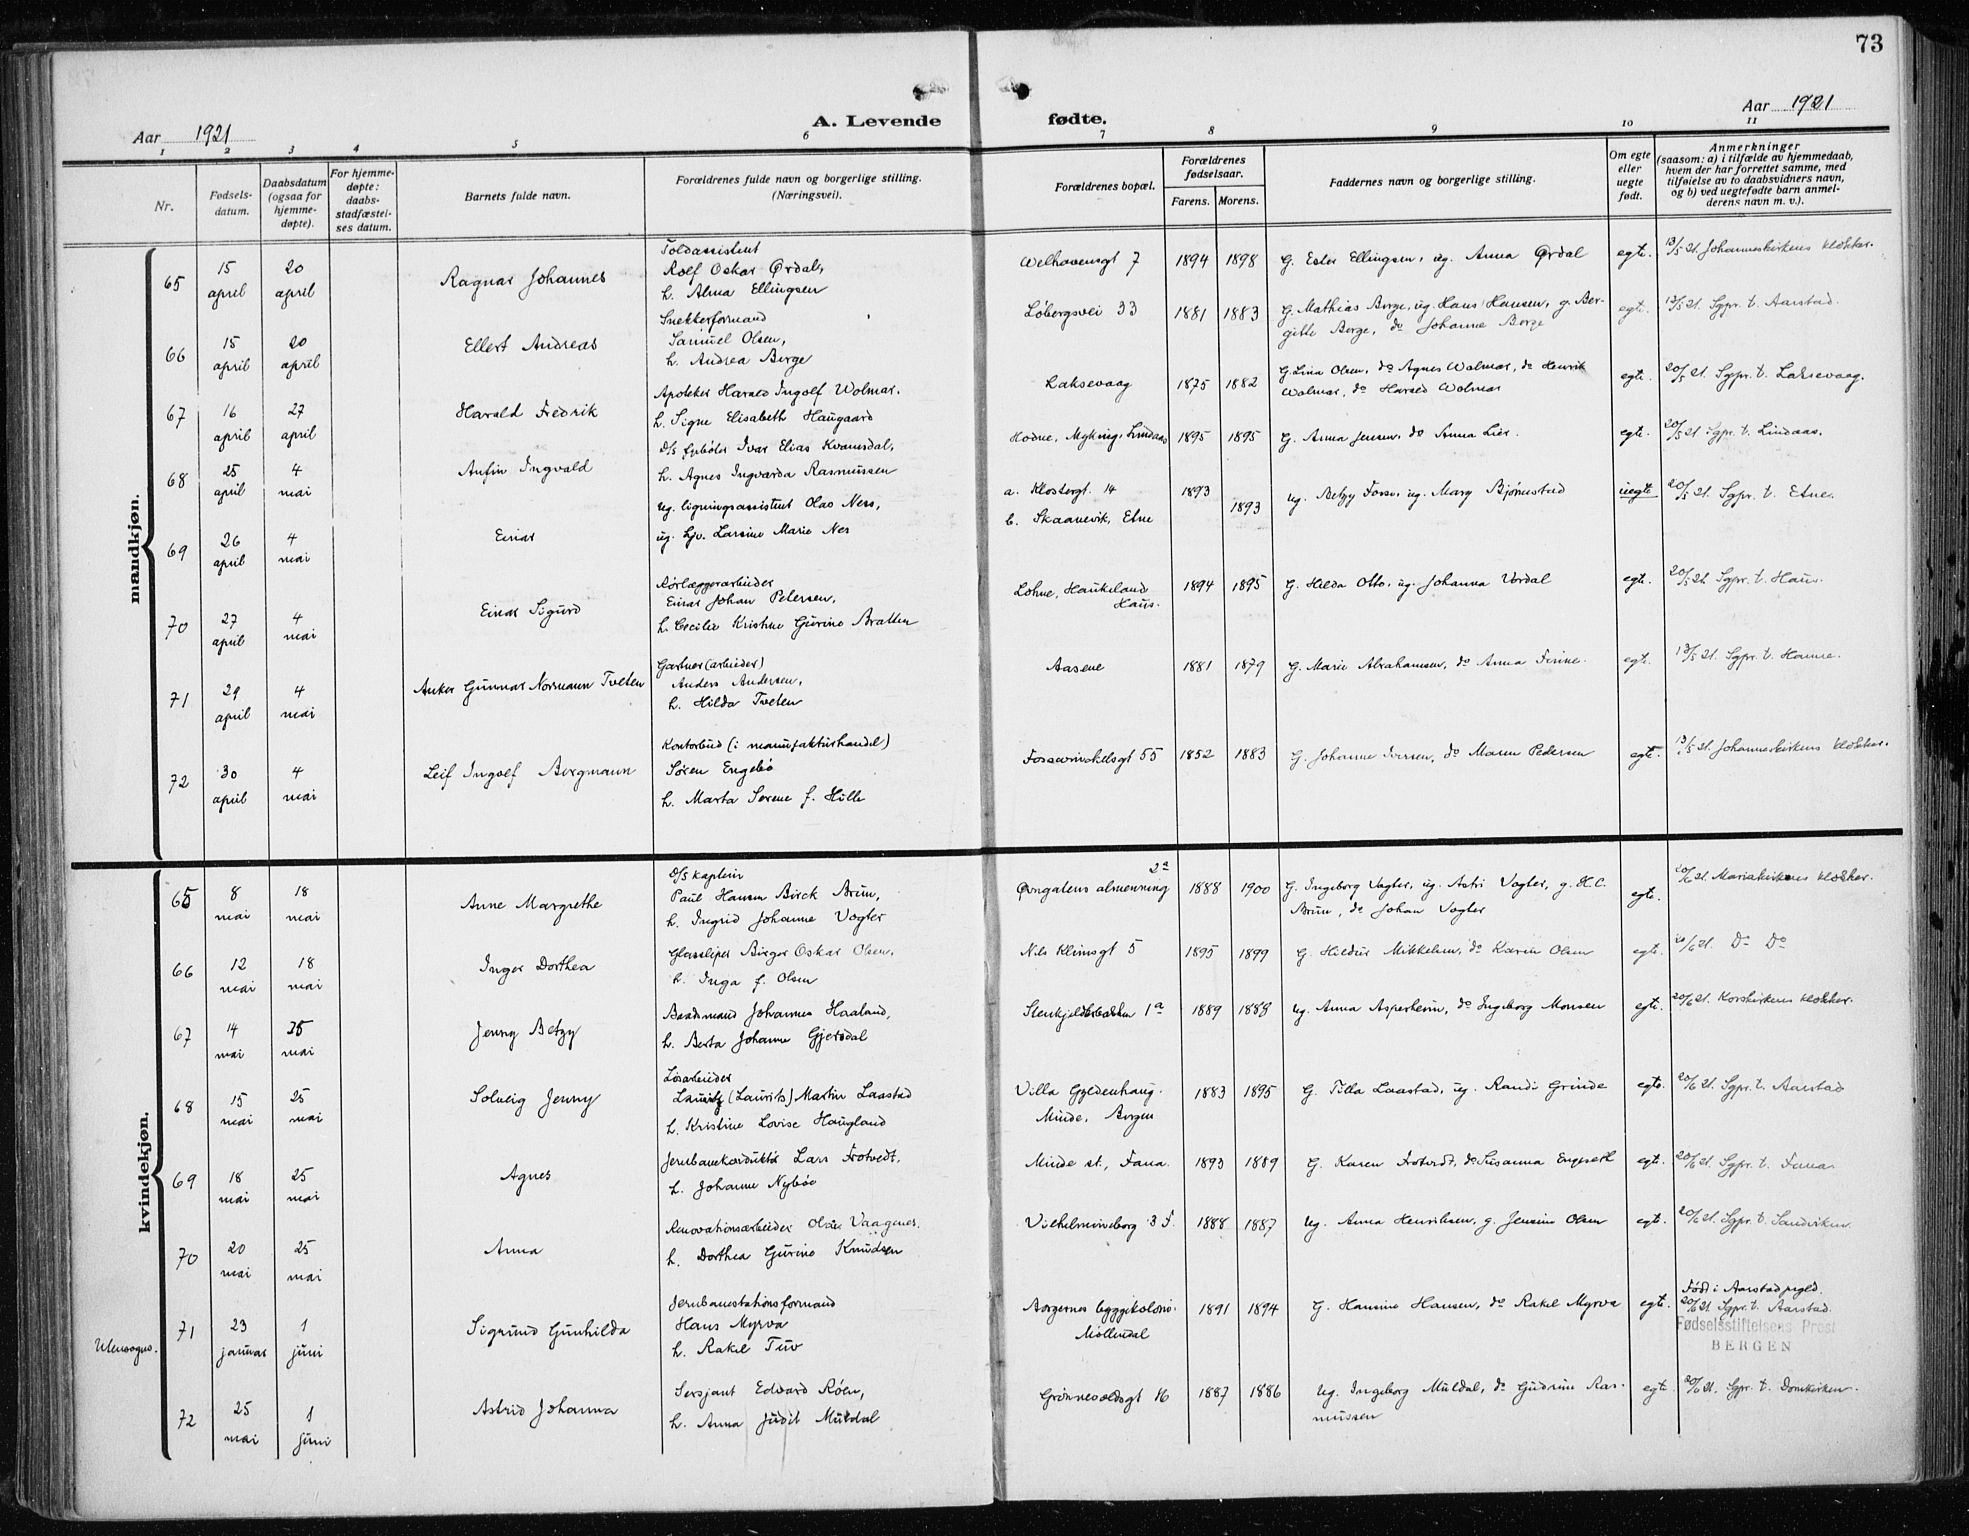 73
Aar 1921
A. Levende fødte.
Aar 1921
1 2 3 4 5 6 7 8 9 10 11
Nr.
Fødsels-
datum.
Daabsdatum
(ogsaa for
hjemme-
døpte).
For hjemme-
døpte:
daabs-
stadfæstel-
ses datum.
Barnets fulde navn.
Forældrenes fulde navn og borgerlige stilling.
(Næringsvei).
Forældrenes bopæl.
Forældrenes
fødselsaar.
Farens. Morens.
Faddernes navn og borgerlige stilling.
Om egte
eller
uegte
født.
Anmerkninger
(saasom: a) i tilfælde av hjemmedaab,
hvem der har forrettet samme, med
tilføielse av to daabsvidners navn,
og b) ved uegtefødte barn anmel-
derens navn m. v.).
mandkjøn.
65 15 april 20 april Ragnar Johannes
Toldassistent
Rolf Oskar Ørdal,
h. Alma Ellingsen
Welhavensgt 7 1894 1898 G. Ester Ellingsen, ug. Anna Ørdal egte. 13/5 21. Johanneskirkens klokker.
66 15 april 20 april Ellert Andreas
Snekkerformand
Samuel Olsen,
h. Andrea Berge
Løbergsvei 33 1881 1883 G. Mathias Berge, ug. Hans Hansen, g. Ber-
gitte Berge, do Johanne Berge
egte. 13/5 21. Sgpr. t. Aarstad.
67 16 april 27 april Harald Fredrik
Apoteker Harald Ingolf Wolmar.
h. Signe Elisabeth Haugaard
Laksevaag 1875 1882 G. Lina Olsen, do Agnes Wolmar, do Henrik
Wolmar, do Harald Wolmar
egte. 20/5 21. Sgpr. t. Laksevaag.
68 25 april 4 mai Anfin Ingvald
D/S fyrbøter Ivar Elias Kvamsdal,
h. Agnes Ingvarda Rasmussen
Hodne, Myking, Lindaas 1895 1895 G. Anna Jensen, do Anna Lier. egte. 20/5 21. Sgpr. t. Lindaas.
69 26 april 4 mai Einar
Ug. ligningsassistent Olav Ness,
ug. Hv. Larsine Marie Nes
a. Klostergt. 14 1893
b. Skaanevik, Etne 1893
ug. Betzy Fosse, ug. Mary Bjørnestad uegte 20/5 21. Sgpr. t. Etne.
70 27 april 4 mai Einar Sigurd
Rørlæggerarbeider
Einar Johan Petersen,
h. Cecilie Kristine Gurine Bratten
Lohne, Haukeland
Haus.
1894 1895 G. Hilda Otto, ug. Johanna Vordal egte. 20/5 21. Sgpr. t. Haus.
71 29 april 4 mai Anker Gunnar Normann Tveten
Gartner (arbeider)
Anders Andersen,
h. Hilda Tveten
Aasene 1881 1879 G. Marie Abrahamsen, do Anna Firine. egte. 13/5 21. Sgpr. t. Hamre.
72 30 april 4 mai Leif Ingolf Bergmann
Kontorbud (i manufakturhandel)
Søren Engebø
h. Marta Serene f. Hille
Fosswinckelsgt 55 1852 1883 G. Johanne Iversen, do Maren Pedersen egte. 13/5 21. Johanneskirkens klokker.
kvindekjøn.
65 8 mai 18 mai Anne Margrethe
D/S kaptein
Paul Hansen Birck Brun,
h. Ingrid Johanne Vogter
Øvregatens almenning 2a 1888 1900 G. Ingeborg Vogter, ug. Astri Vogter, g. H.C.
Brun, do Johan Vogter
egte. 20/6 21. Mariakirkens klokker.
66 12 mai 18 mai Inger Dorthea
Glassliper Birger Oskar Olsen,
h. Inga f. Olsen
Nils Klimsgt 5 1895 1899 G. Hildur Mikkelsen, do Karin Olsen egte. 20/6 21. Do Do
67 14 mai 25 mai Jenny Betzy
Baadsmand Johannes Haaland,
h. Berta Johanne Gjersdal
Stenkjelderbakken 1a 1889 1888 ug. Anna Asperheim, do Ingeborg Monsen egte. 20/6 21. Korskirkens klokker.
68 15 mai 25 mai Solveig Jenny
Løsarbeider
Lauritz (Laurits) Martin Laastad
h. Kristine Lovise Haugland
Villa Gyldenhaug.
Minde, Bergen
1883 1895 G. Tilla Laastad, ug. Randi Grinde egte. 20/6 21. Sgpr. t. Aarstad
69 18 mai 25 mai Agnes
Jernbanekonduktør Lars Trotvedt,
h. Johanne Nybøe
Minde st., Fana. 1893 1889 G. Karen Trotvedt, do Susanna Engeseth egte. 20/6 21. Sgpr. t. Fana
70 20 mai 25 mai Anna
Renovationsarbeider Olai Vaagenes.
h. Dorthea Gurine Knudsen
Vilhelmineborg 3 F. 1888 1887 ug. Anna Henriksen, g. Jensine Olsen egte. 20/6 21. Sgpr. t. Sandviken
Utensogns.
71 23 januar 1 juni Sigrund Gunhilda
Jernbanestationsformand
Hans Myrva
h. Rakel Tuv
Borgernes byggekoloni.
Møllendal
1891 1894 G. Hansine Hansen, do Rakel Myrva egte.
Født i Aarstad prgld.
20/6 21. Sgpr. t. Aarstad.
Fødselsstiftelsens Prest
BERGEN
72 25 mai 1 juni Astrid Johanna
Sersjant Edvard Røen,
h. Anna Judit Muldal
Grønnevoldsgt 16 1887 1886 ug. Ingeborg Muldal, do Gudrun Ras-
mussen
egte. 20/6 21. Sgpr. t. Domkirken.